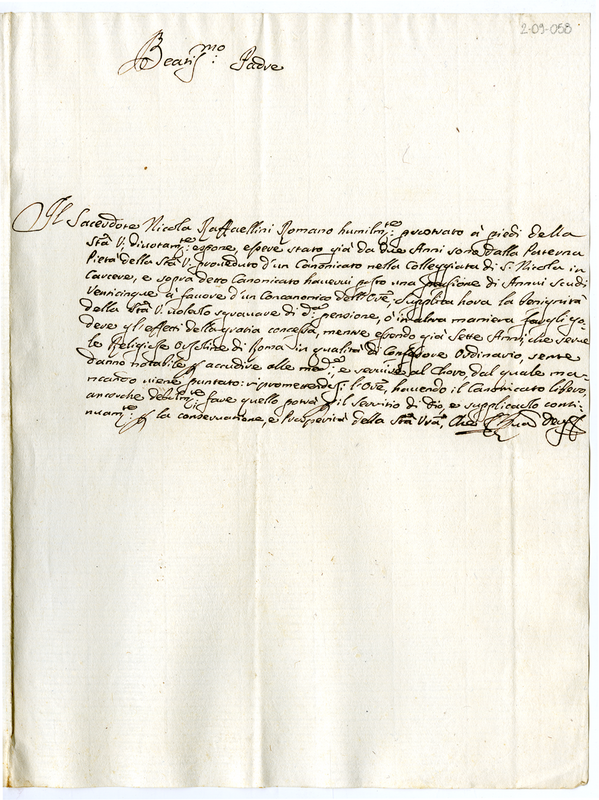 2-09-058
Beatis.mo Padre
Il Sacerdote Nicola Raffaellini Romano humilm.te prostrato à piedi della
S.tà V. divotam.te espone, essere stato già da due Anni sono dalla Paterna
Pietà della S.tà V. proveduto d'un Canonicato nella Colleggiata di S. Nicola in
Carcere, e sopra detto Canonicato havervi posto una pensione di Annui scudi
Venticinque à favore d'un Concanonico dell'Ore, supplica hora la benignità
della S.tà V. volerlo sgravare di d.a pensione, ò in altra maniera fargli go-
dere gli effetti della gratia concessa, mentre essendo già sette Anni, che serve
le Religiose Orsoline di Roma in qualità di Confessore Ordinario, sente
danno notabile p accudire alle med.e, e servire al Choro dal quale man-
cando viene puntato: ripromettendosi l'Ore, havendo il Canonicato libero,
ancorche debilm.te fare quello potrà p il servitio di Dio, e supplicarlo conti-
nuam.te p la conservatione, e Prosperità della S.tà V.ra, Che